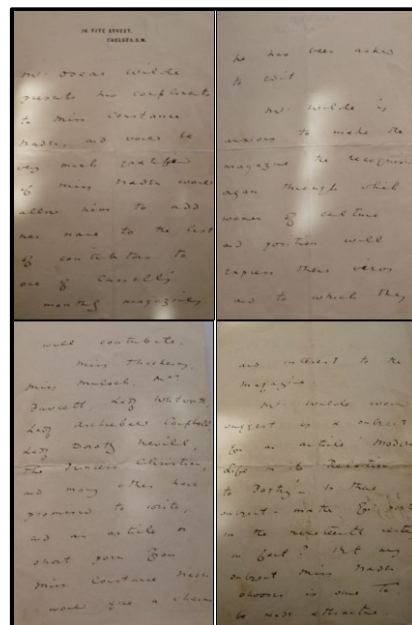 16, TITE STREET,
CHELSEA. S.W.
Mr. Oscar Wilde
presents his compliments
to Miss Constance
Naden, and would be
very much gratified
if Miss Naden would
allow him to add
her name to the list
of contributors to
one of Cassell's
monthly magazines
he has been asked
to edit.
Mr. Wilde is
anxious to make the
magazine the recognised
organ through which
women of culture
and position will
express their views
and to which they
will contribute.
Miss Thackeray,
Miss Mulock, Mrs
Fawcett, Lady
Lady Archibald Campbell
Lady Dorothy Nevill,
The Princess Christian,
and many others have
promised to write,
and an article or
short poem from
Miss Constance Naden
would give a charm
and interest to the
magazine.
Mr. Wilde would
suggest as a subject
for an article 'Modern
Life in its Relation
to Poetry'. Is there
subject-matter for poetry
in the nineteenth century
in Gent? But any
subject Miss Naden
chooses is sure to
be made attractive.